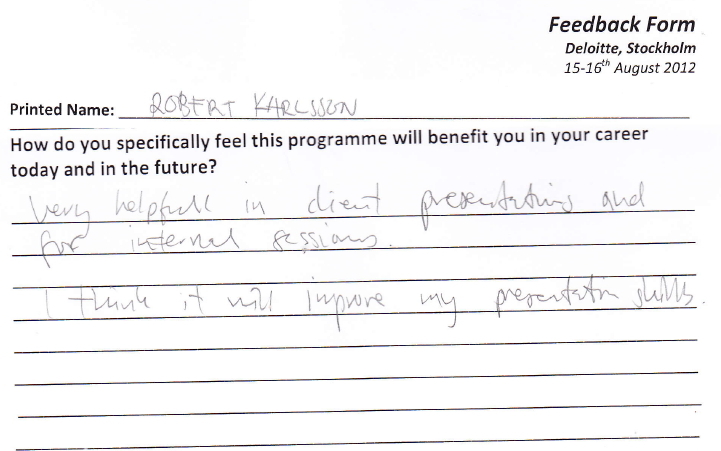 Feedback Form
Deloitte, Stockholm
15-16th August 2012
Printed Name: ROBERT KARLSSON
How do you specifically feel this programme will benefit you in your career
today and in the future?
Very helpfull in client presentations and
for internal sessions.
I think it will improve my presentation skills.